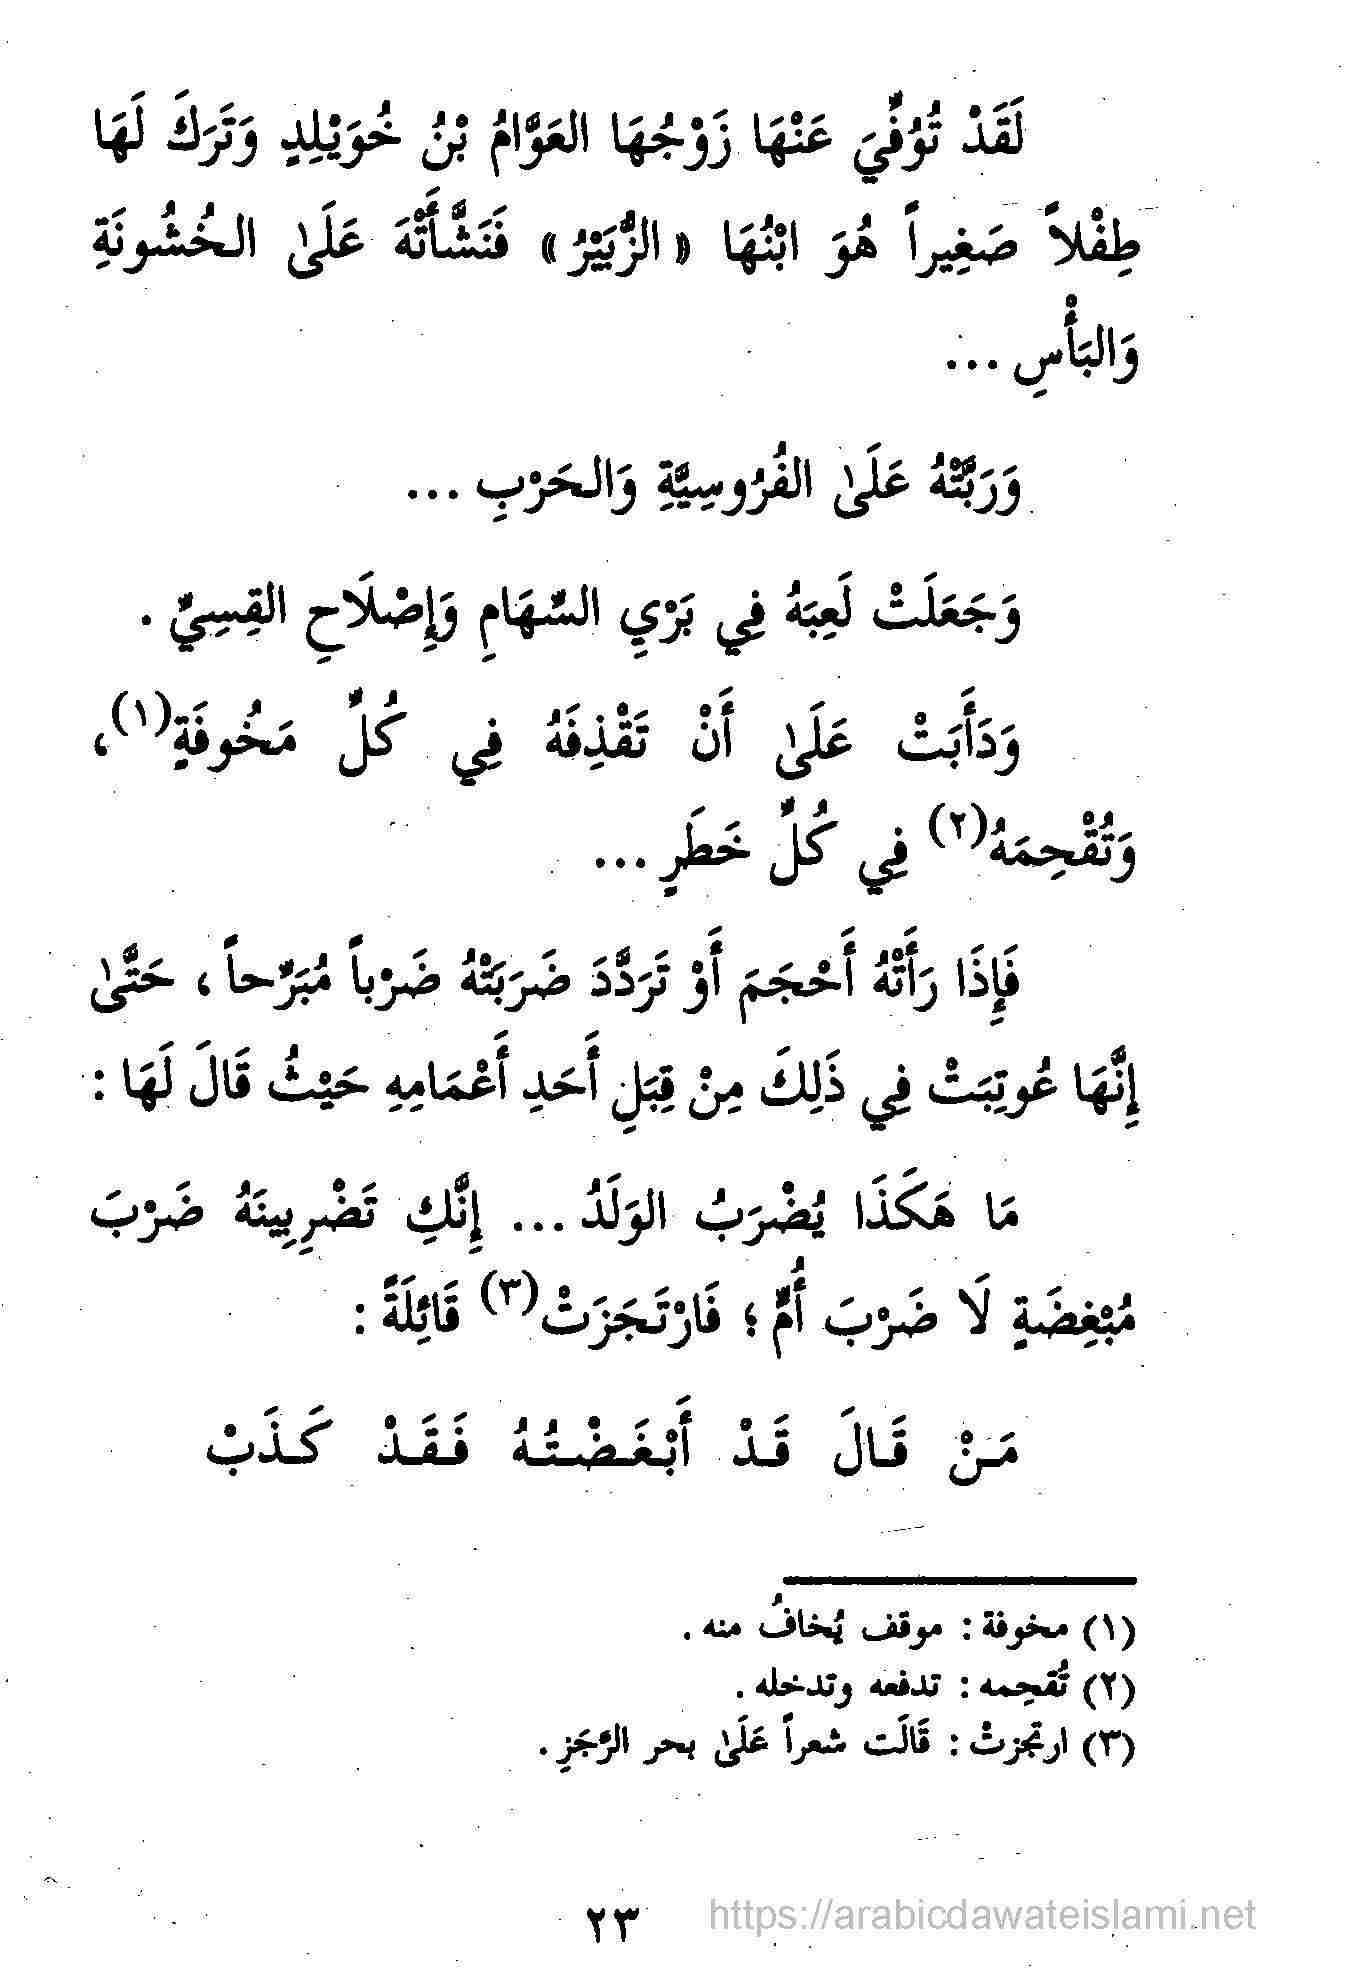 لَقَدْ تُوُفِّيَ عَنْهَا زَوْجُهَا العَوَّامُ بْنُ خُوَيْلِدٍ وَتَرَكَ لَهَا
طِفْلاً صَغِيراً هُوَ ابْنُهَا « الزُّبَيْرُ » فَنَشَّأَتْهُ عَلَىٰ الخُشُونَةِ
وَالبَأْسِ ...
وَرَبَّتْهُ عَلَىٰ الفُرُوسِيَّةِ وَالحَرْبِ ...
وَجَعَلَتْ لَعِبَهُ فِي بَرْيِ السِّهَامِ وَإِصْلَاحِ القِسِيِّ .
وَدَأَبَتْ عَلَىٰ أَنْ تَقْذِفَهُ فِي كُلِّ مَخُوفَةٍ(١)،
وَتُقْحِمَهُ(٢) فِي كُلِّ خَطَرٍ ...
فَإِذَا رَأَتْهُ أَحْجَمَ أَوْ تَرَدَّدَ ضَرَبَتْهُ ضَرْباً مُبَرِّحاً ، حَتَّىٰ
إِنَّهَا عُوتِبَتْ فِي ذَلِكَ مِنْ قِبَلِ أَحَدِ أَعْمَامِهِ حَيْثُ قَالَ لَهَا :
مَا هَكَذَا يُضْرَبُ الوَلَدُ ... إِنَّكِ تَضْرِبِينَهُ ضَرْبَ
مُبْغِضَةٍ لَا ضَرْبَ أُمٍّ ؛ فَارْتَجَزَتْ(٣) قَائِلَةً :
مَنْ قَالَ قَدْ أَبْغَضْتُهُ فَقَدْ كَذَبْ
(١) مخوفة : موقف يُخافُ منه .
(٢) تُقحِمه : تدفعه وتدخله .
(٣) ارتجزتْ : قَالَت شعراً عَلَىٰ بحر الرَّجَزِ .
٢٣
https://arabicdawateislami.net